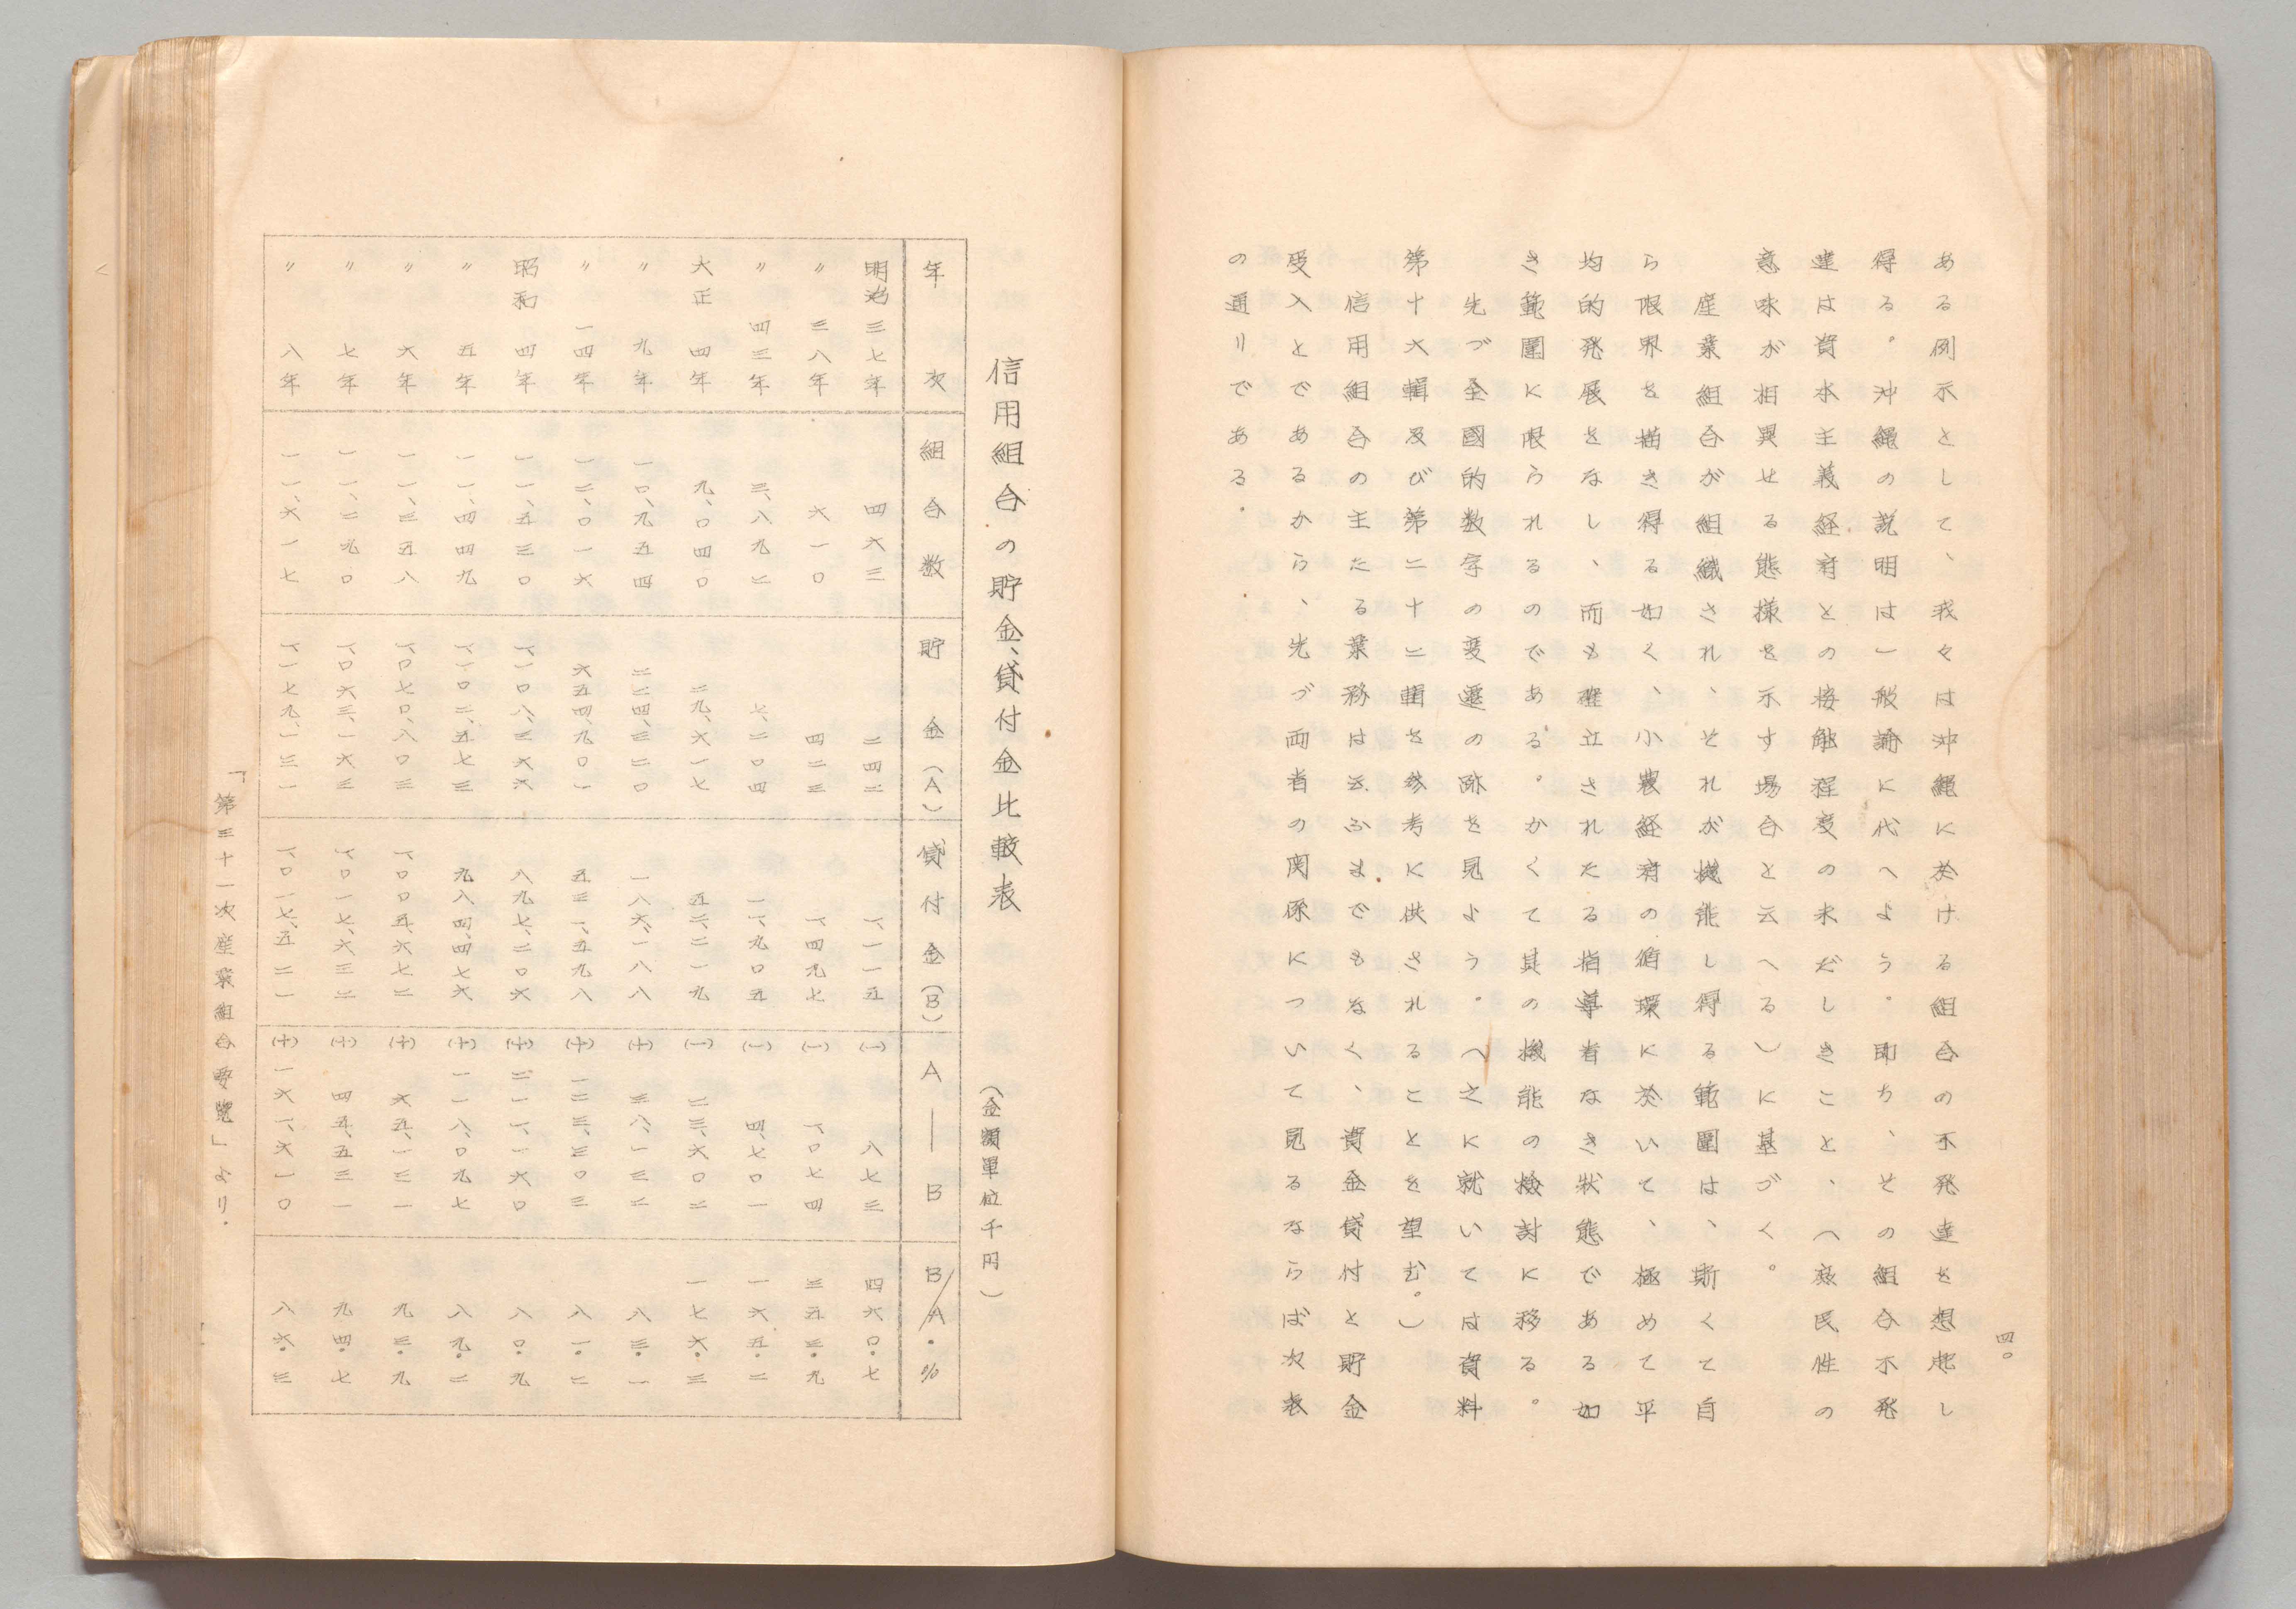 四〇
ある例示として、我々は沖縄に於ける組合の不発達を想起し
得る。沖縄の説明は一般論に代へよう。即ち、その組合不発
達は資本主義経済との接触程度の未だしきこと、(庶民性の
意味が相異せる態様を示す場合と云へる)に基づく。
産業組合が組織され、それが機能し得る範囲は、斯くて自
ら限界を描き得る如く、小農経済の循環に於いて、極めて平
均的発展をなし、而も確立されたる指導者なき状態である如
き範圍に限られるのである。かくて其の機能の検討に移る。
先づ全國的数字の変遷の跡を見よう。(之に就いては資料
第十六輯及び第二十二輯を参考に供されることを望む。)
信用組合の主たる業務は云ふまでもなく、資金貸付と貯金
受入とであるから、先づ両者の関係について見るならば次表
の通りである.
信用組合の貯金、貸付金比較表
(金額單位千円)
年次 組合数 貯金(A) 貸付金(B) A—B B/A・%
明治三七年 四六三 二四二 一、一一五 (一) 八七三 四六〇・七
〃三八年 六一〇 四二三 一、四九七 (一) 一、〇七四 三五三・九
〃四三年 三、八九二 七、二〇四 一一、九〇五 (一) 四、七〇一 一六五・二
大正四年 九、〇四〇 二九、六一七 五二、二一九 (一) 二三、六〇二 一七六・三
〃九年 一〇、九五四 二二四、三二〇 一八六、一八八 (十) 三八、一三二 八三・一
〃一四年 一二、〇一六 六五四、九〇一 五三一、五九八 (十) 一二三、三〇三 八一・二
昭和四年 一一、五三〇 一、一〇八、三六六 八九七、二〇六 (十) 二一一、一六〇 八〇・九
〃五年 一一、四四九 一、一〇二、五七三 九八四、四七六 (十) 一一八、〇九七 八九・二
〃六年 一一、三五八 一、〇七〇、八〇三 一、〇〇五、六七二 (十) 六五、一三一 九三・九
〃七年 一一、二九〇 一、〇六三、一六三 一、〇一七、六三二 (十) 四五、五三一 九四・七
〃八年 一一、六一七 一、一七九、一三一 一、〇一七、五二一 (十) 一六一、六一〇 八六・三
「第三十一次産業組合要覧」より.